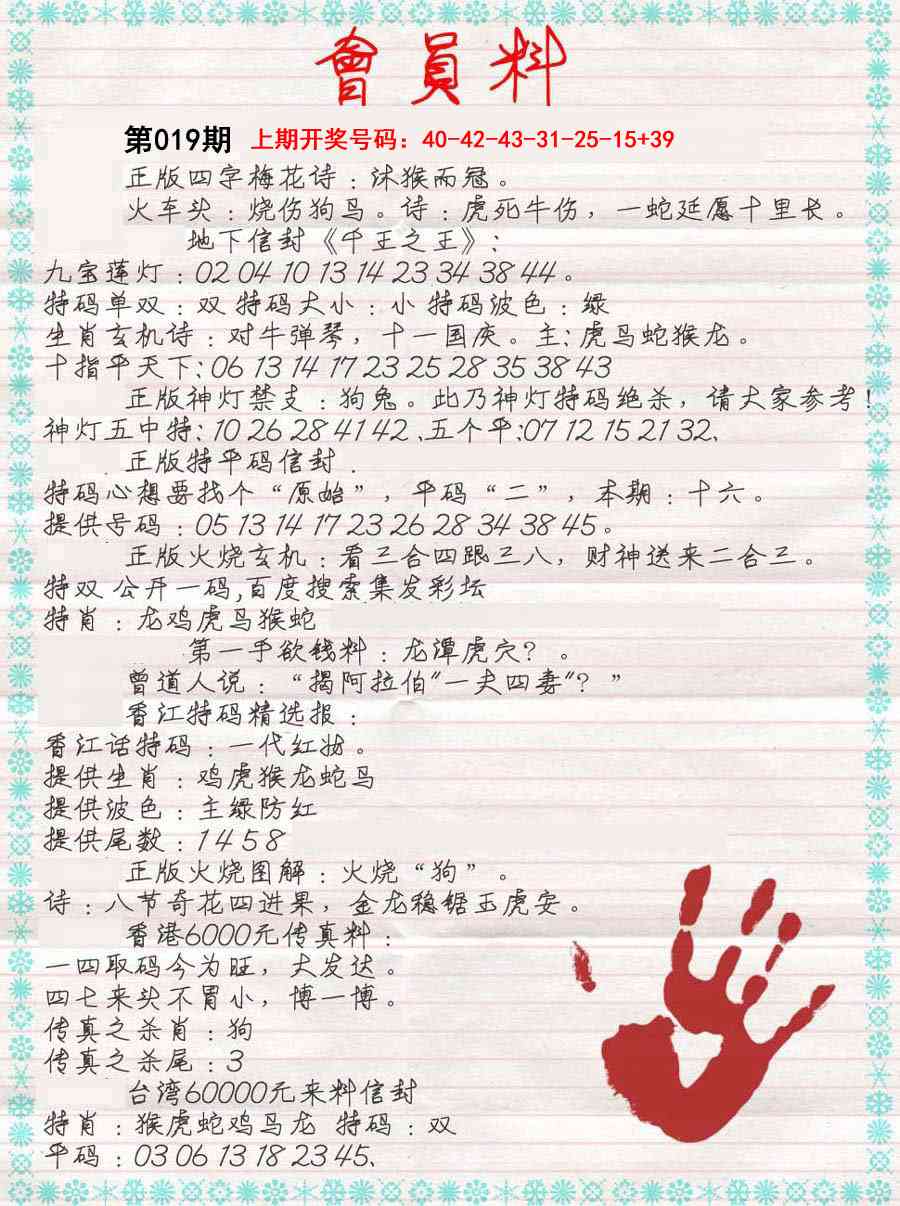 會員料
第019期 上期开奖号码：40-42-43-31-25-15+39
正版四字梅花诗：沐猴而冠。
火车头：烧伤狗鸟。诗：虎死牛伤，一蛇延愿十里长。
地下信封《千王之王》：
九宝莲灯：02 04 10 13 14 23 34 38 44。
特码单双：双 特码大小：小 特码波色：绿
生肖玄机诗：对牛弹琴，十一国庆。主：虎鸟蛇猴龙。
十指平天下：06 13 14 17 23 25 28 35 38 43
正版神灯禁支：狗兔。此乃神灯特码绝杀，请大家参考！
神灯五中特：10 26 28 41 42、五个平:07 12 15 21 32、
正版特平码信封．
特码心想要找个“原始”，平码“二”，本期：十六。
提供号码：05 13 14 17 23 26 28 34 38 45。
正版火烧玄机：看三合四跟三八，财神送来二合三。
特双 公开一码,百度搜索集发彩坛
特肖：龙鸡虎鸟猴蛇
第一手欲钱料：龙潭虎穴？。
曾道人说：“揭阿拉伯"一夫四妻"？”
香江特码精选报：
香江话特码：一代红妆。
提供生肖：鸡虎猴龙蛇鸟
提供波色：主绿防红
提供尾数：1 4 5 8
正版火烧图解：火烧“狗”。
诗：八节奇花四进果，金龙稳锯玉虎安。
香港6000元传真料：
一四取码今为旺，大发达。
四七来头不胃小，博一博。
传真之杀肖：狗
传真之杀尾：3
台湾60000元来料信封
特肖：猴虎蛇鸡马龙 特码：双
平码：03 06 13 18 23 45、